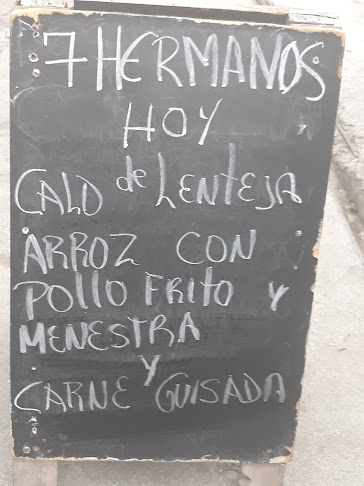 7 HERMANOS
HOY
CALD de LENTEJA
ARROZ CON
POllO FRITO Y
MENESTRA
Y
CARNE GUISADA